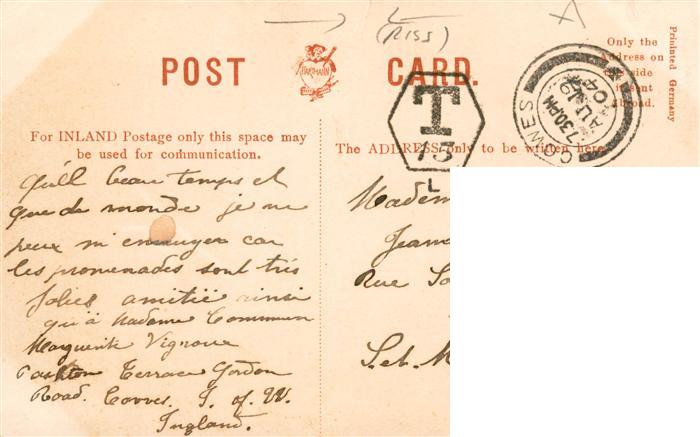 (RISS)
A
POST CARD.
HARTMANN
Only the
Address on
this side
if sent
Abroad.
Printed Germany
T
15
L
COWES
7.30 PM
AU 19
04
For INLAND Postage only this space may
be used for communication.
The ADDRESS only to be written here.
Qu'ell beau temps et
que de monde je ne
peux m'ennuyer car
les promenades sont très
jolies amitié ainsi
qu'à Madame Commun
Marguerite Vignoue
Terrace Gordon
Road. Cowes. I. of W.
England.
Madem
Jeann
Rue So
S.et.M